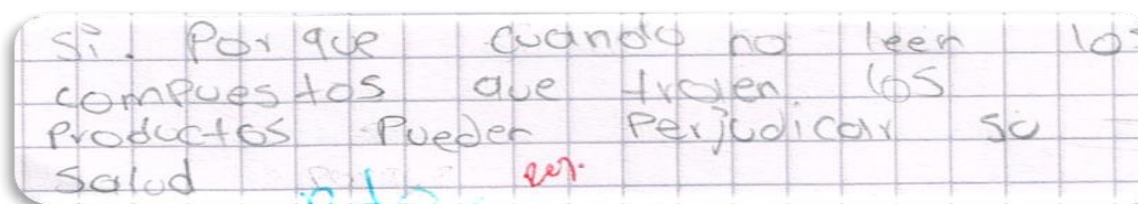 Si. Por que cuando no leen los
compuestos que traen los
productos Pueden Perjudicar su
Salud